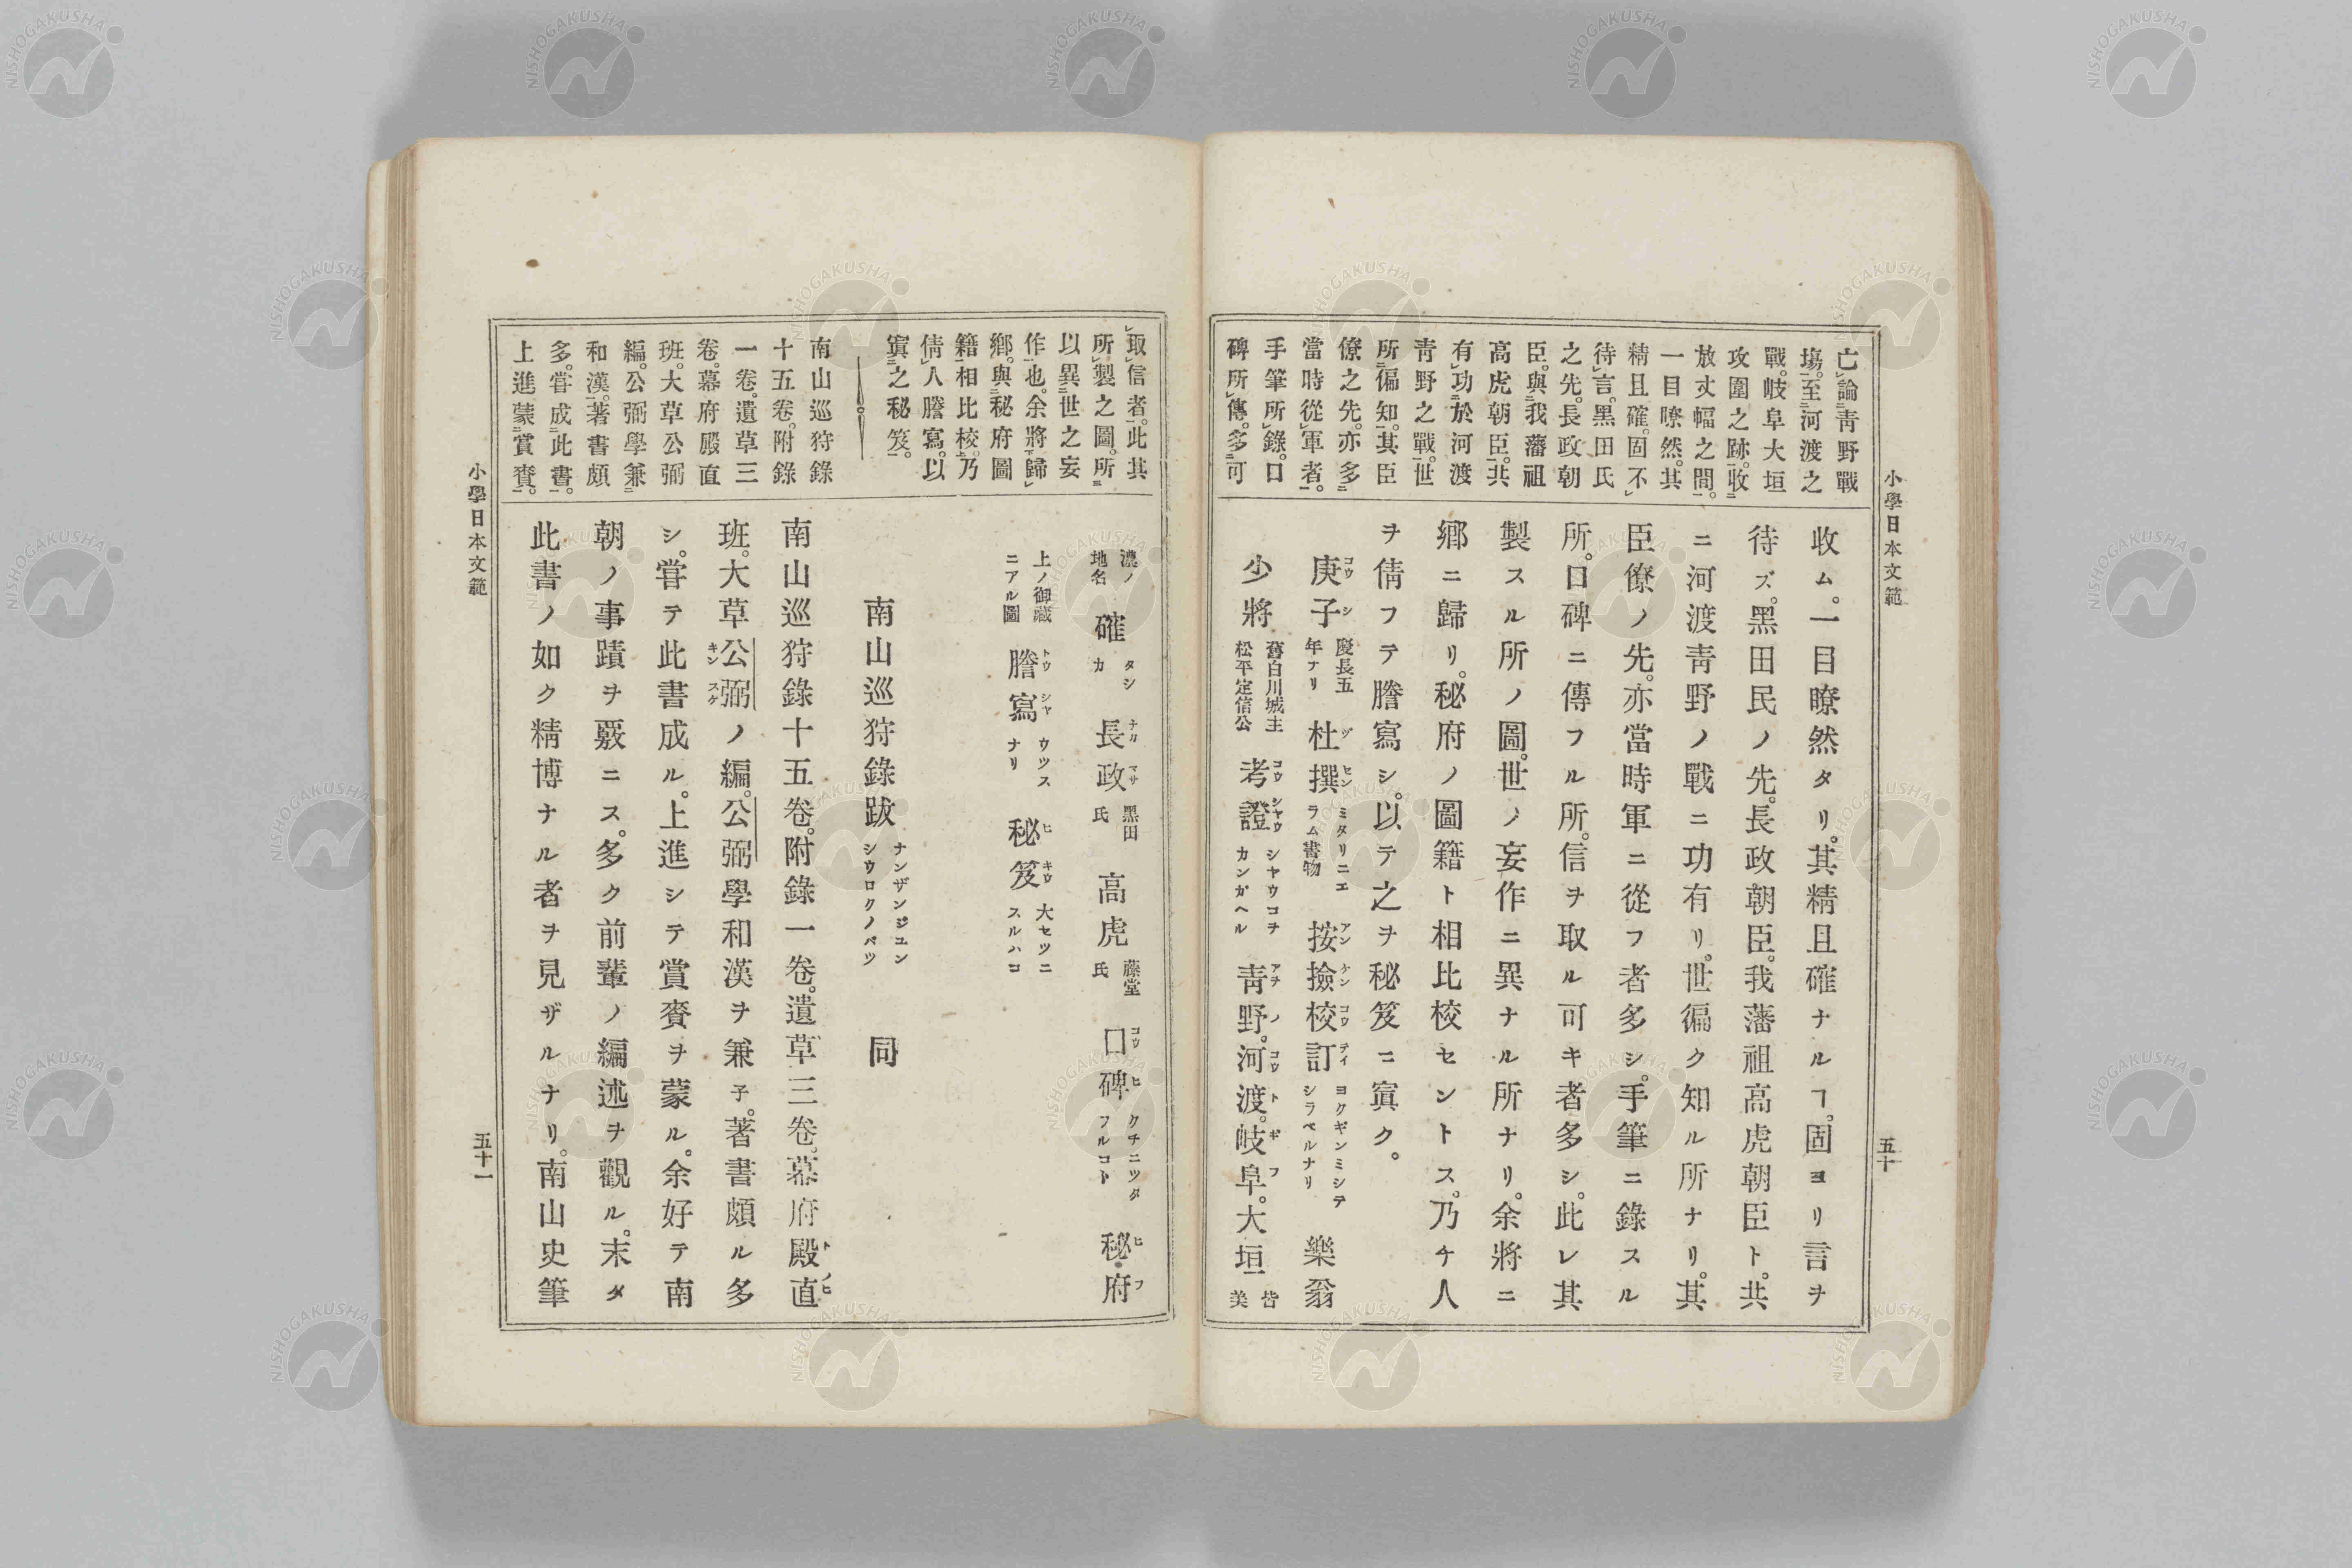 小學日本文範
五十
亡論靑野戰
塲至河渡之
戰岐阜大垣
攻圍之跡收
放丈幅之間
一目瞭然其
精且確固不
待言黑田氏
之先長政朝
臣與我藩祖
高虎朝臣共
有功於河渡
靑野之戰世
所偏知其臣
僚之先亦多
當時從軍者
手筆所錄口
碑所傳多可
收ム。一目瞭然タリ。其精且確ナルヿ。固ヨリ言ヲ
待ズ。黑田民ノ先。長政朝臣。我藩祖高虎朝臣ト。共
ニ河渡靑野ノ戰ニ功有リ。世徧ク知ル所ナリ。其
臣僚ノ先。亦當時軍ニ從フ者多シ。手筆ニ錄スル
所。口碑ニ傳フル所。信ヲ取ル可キ者多シ。此レ其
製スル所ノ圖。世ノ妄作ニ異ナル所ナリ。余將ニ
鄕ニ歸リ。秘府ノ圖籍ト相比校セントス。乃チ人
ヲ倩フテ謄寫シ。以テ之ヲ秘笈ニ寘ク。
庚子 コウシ 慶長五年ナリ 杜撰 ヅセン ミタリニエラム書物 按撿校訂 アンケンコウテイ ヨクギンミシテシラベルナリ 樂翁
少將 舊白川城主松平定信公 考證 コウシヤウ シヤウコヲカンガヘル 靑野。アヲノ 河渡。コウト 岐阜。ギフ 大垣 皆美
取信者此其
所製之圖所
以異世之妄
作也余將歸
鄕與秘府圖
籍相比校乃
倩人謄寫以
寘之秘笈
南山巡狩錄
十五卷附錄
一卷遺草三
卷幕府殿直
班大草公弼
編公弼學兼
和漢著書頗
多甞成此書
上進蒙賞賚
濃ノ地名 確 タシカ 長政 ナガマサ 黑田氏 高虎 藤堂氏 口碑 コウヒ クチニツタフルコト 秘府 ヒフ
上ノ御藏ニアル圖 謄寫 トウシヤ ウツスナリ 秘笈 ヒキウ 大セツニスルハコ
南山巡狩錄跋 ナンザンジユンシウロクノバツ 同
南山巡狩錄十五卷。附錄一卷。遺草三卷。幕府殿直
班。大草公弼ノ編。公弼學和漢ヲ兼子。著書頗ル多
シ。甞テ此書成ル。上進シテ賞賚ヲ蒙ル。余好テ南
朝ノ事蹟ヲ覈ニス。多ク前輩ノ編述ヲ觀ル。末タ
此書ノ如ク精博ナル者ヲ見ザルナリ。南山史筆
小學日本文範
五十一
NISHOGAKUSHA